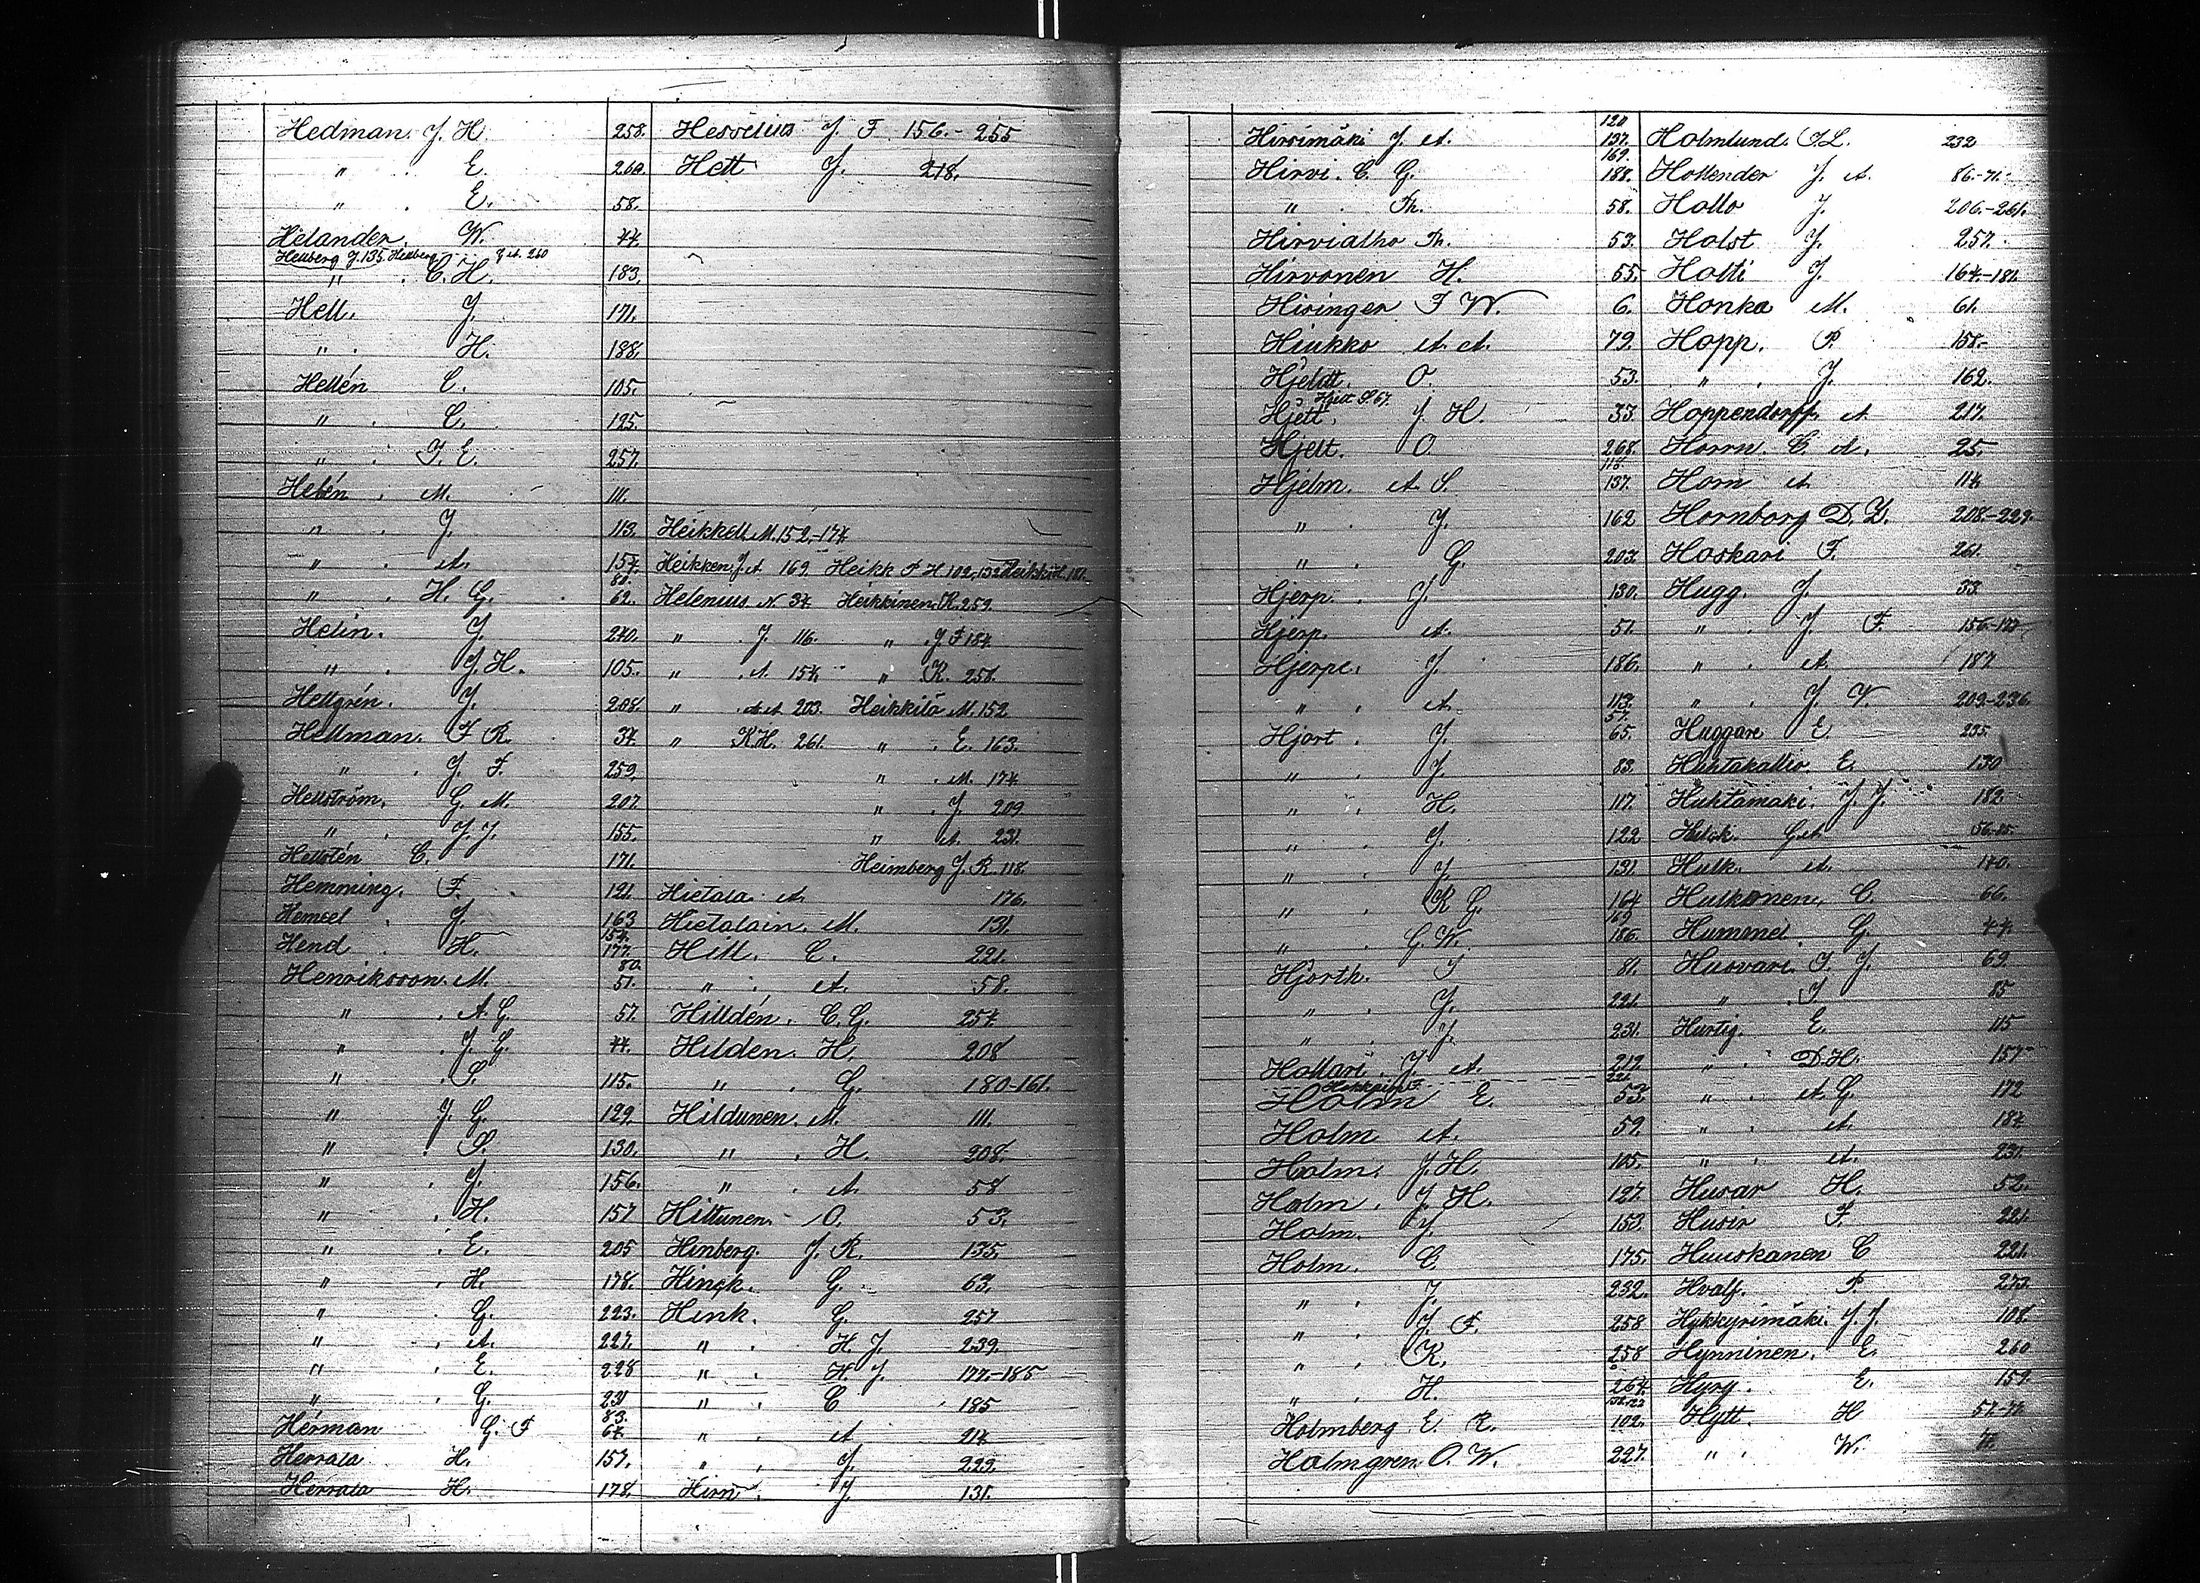 Hedman. J. H. 258.
" . E. 260.
" . E. 58.
Helander. W. 44.
Heuberg J. 135. Heuberg J. A. 260
" . C. H. 183.
Hell. J. 171.
" . H. 188.
Hellén C. 105.
" . C. 125.
" . J. E. 257.
Helén . M. 111.
" . J. 113.
" . A. 154.
80.
" . H. G. 62.
Helin. J. 240.
" . J. H. 105.
Hellgrén. J. 208.
Hellman. F. R. 34.
" . J. F. 259.
Hellström. G. M. 207.
" . J. J. 155.
Hellstén C. 171.
Hemming. F. 121.
Hemsel . J. 163
154.
Hend . H. 177.
80.
Henriksson. M. 51.
" . A. G. 57.
" . J. G. 44.
" . S. 115.
" J. G. 129.
" . S. 130.
" . J. 156.
" . H. 157
" . E. 205
" . H. 178.
" . G. 223.
" . A. 227.
" . E. 228
" . G. 231
83.
Hérman G. F 64.
Herrala H. 157.
Herrala H. 178.
Hesselius J F 156.-255
Hett J. 218.
Heikkell. M. 152.-174.
Heikken. J. A 169. Heikk F H 102, 132
Helenius N 34 Heikkinen. K. 259.
" . J 116. " . J F 184.
" . A. 154 " K. 258.
" A. A 203. Heikkilä M. 152
" K H. 261. " . E. 163.
" . M. 174.
" . J. 209
" A. 231.
Heimberg J. R. 118.
Hietala. A. 176.
Hietalain. M. 131.
Hill. C. 221.
" . A. 58.
Hilldén. C. G. 254.
Hilden. H. 208
" . G. 180-161.
Hildunen. M. 111.
" . H. 208.
" . A. 58
Hiltunen. O. 53.
Hinberg. J. R. 135.
Hinck. G. 63.
Hink. G. 257
" . H. J. 239.
" . H. J. 177.-185
" . C 185
" . A 214
" . J. 229.
Hirn . J. 131.
120
Hirsimäki J. A. 137.
169.
Hirvi. C. G. 188.
" . Th. 58.
Hirvialho Th. 53.
Hirvonen H. 55.
Hisinger F W. 6.
Hiukko A. A. 79.
Hjeldt. O. 53.
Hjelt S. 67.
Hjelt. J H. 33
Hjelt. O. 268.
118.
Hjelm. A. S. 137.
" . J. 162
" . G. 203.
Hjerp. . J. 130.
Hjerp. A. 51.
Hjerpe. J. 186.
" . A. 113.
57.
Hjort . J. 65.
" . J. 83.
" . H. 117.
" . J. 122
" . J 131.
" . K G. 164
169
" . G. W. 186.
Hjorth. J 81.
" . J. 221.
" . J. 231.
Hollari. J. A. 217.
221.
Holm E. 53.
Holm A. 59.
Holm. J. H. 105.
Holm . J. H. 127.
Holm. J. 153.
Holm. C. 175.
" . J. 232.
" . J. F. 258
" . K. 258
" . H. 264.
Holmberg. E. R. 102.
Holmgren. O. W. 227.
Holmlund. F. L. 232
Hollender J. A. 86.-71.
Hollo J. 206.-261.
Holst J. 257.
Holti J. 164.-181.
Honka M. 61.
Hopp. P. 158.
" . J. 162.
Hoppendorff A. 217.
Horrn. C. A. 25.
Horn A. 114
Hornborg D. Z. 208.-229.
Hoskari F. 261.
Hugg. J. 33
" . J F.
" . A. 187
" . J V. 209.-236.
Huggare E 235.
Huhtakallio. E. 130
Huhtamäki. J. J. 182
Hulk. A. 140.
Hulkonen. C. 66.
Hummel . G. 44.
Husvari. J. J. 69
" . J 85
Hurtig. E. 115
" . D. H. 157
" . A. G. 172
" . A. 184
" . A. 231.
Husar H. 52.
Husir F. 221.
Huuskanen C 221.
Hvalf. P. 273.
Hykkyrimäki. J. J. 108.
Hynninen. E. 260
Hyry. E. 159.
Hytt. H
" . W.